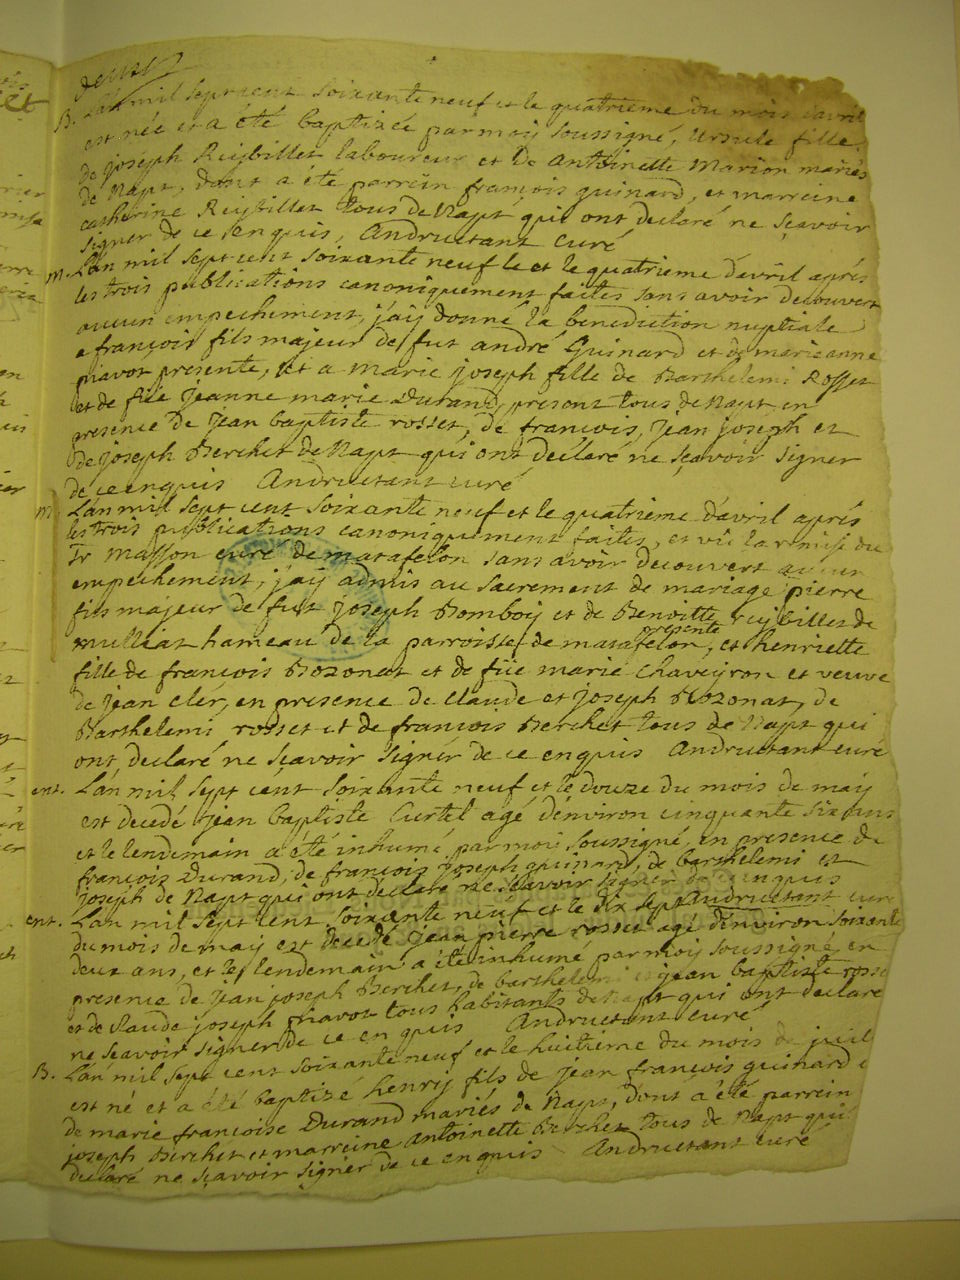 deux
B. L'an mil sept cent soixante neuf et le quatrieme du mois d'avril
est née et a été baptizée par moy soussigné, Ursule fille
de joseph Reijbillet laboureur et de Antoinette Marion mariés
de Napt, dont a été parrein françois guinard, et marreine
catherine Reijbillet tous de Napt qui ont declaré ne sçavoir
signer de ce enquis, Andruetant curé
m. L'an mil sept cent soixante neuf le et le quatrieme d'avril aprés
les trois publications canoniquement faites sans avoir decouvert
aucun empechement, j'aij donné la benediction nuptiale
a françois fils majeur de fut andré Guinard et de marieanne
privot presente, et a marie joseph fille de Barthelemi Rosset
et de füe Jeanne marie Durand, present tous de Napt, en
presence de Jean baptiste rosset, de francois, Jean joseph et
de joseph Berchet de Napt qui ont declaré ne sçavoir signer
de ce enquis Andruetant curé
m. L'an mil sept cent soixante neuf et le quatrieme d'avril aprés
les trois publications canoniquement faites, et vû la remise du
Sr Masson curé de matafelon sans avoir decouvert aucun
empechement, j'aij admis au sacrement de mariage pierre
fils majeur de fut joseph Bomboij et de Benoitte reijbillet de
mulliat hameau de la parroisse de matafelon, et henriette
presente
fille de françois Bozonat et de füe marie Chaveyron et veuve
de jean cler, en presence de Claude et joseph Bozonat, de
Barthelemi rosset et de francois Berchet tous de Napt qui
ont declaré ne sçavoir signer de ce enquis Andruetant curé
ent. L'an mil sept cent soixante neuf et le douze du mois de maij
est decedé jean baptiste Curtet agé d'environ cinquante six ans
et le lendemain a été inhumé par moij soussigné, en presence de
françois Durand, de françois joseph guinard, de barthelemi et
joseph de Napt qui ont declaré ne sçavoir signer de ce enquis
Andruetant curé
ent. L'an mil sept cent soixante neuf et le dix sept
du mois de maij est decedé jean pierre rosset agé d'environ soixante
deux ans, et le lendemain a été inhumé par moij soussigné, en
presence de Jean joseph Berchet, de barthelemi et jean baptiste rosset
et de claude joseph privot tous habitants de Napt qui ont declaré
ne sçavoir signer de ce enquis Andruetant curé
B. L'an mil sept cent soixante neuf et le huitieme du mois de
est né et a été baptizé henrij fils de jean françois guinard
de marie francoise Durand mariés de Napt, dont a été parrein
joseph Berchet et marreine antoinette Berchet tous de Napt qui
declaré ne sçavoir signer de ce enquis Andruetant curé